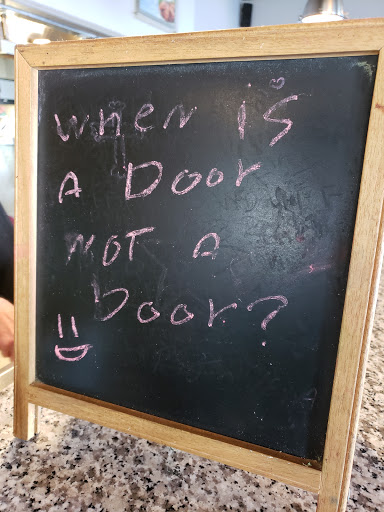 when is
A Door
NOT A
Door?
=D